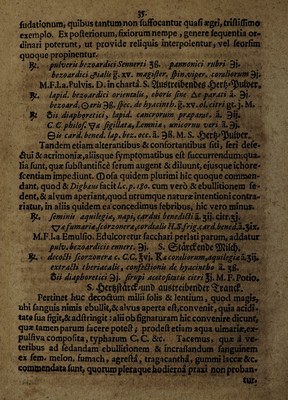 35.
sudationum, quibus tantum non suffocantur quasi ægri, tristissimo
exemplo. Ex posteriorum, fixiorum nempe, genere sequentia or-
dinari poterunt, ut provide reliquis interpolentur, vel seorsim
quoque propinentur.
℞. pulveris bezoardici Senneri ℈ß. pannonici rubri ℈j.
bezoardici gr. xv. magister. spin. viper. corallorum ℈j.
M.F.l.a. Pulvis. D. in chartâ. S. Austreibendes Hertz-Pulver.
℞. lapid. bezoardici orientalis, eboris sine parati ā. ℈j.
bezoard. ℈ß. spec. de hyacinth. g. xv. ol. citri gt. j. M.
℞. diaphoretici, lapid. cancrorum præparat. ā. ℈ij.
C.C. philos. sigillatæ, Lemniæ, unicornu veri ā. ℈j.
card. bened. lap. bez. occ. ā. ℈ß. M. S. Hertz-Pulver.
Tandem etiam alterantibus & confortantibus siti, seri defe-
ctui & acrimoniæ, aliisque symptomatibus est succurrendum: qua-
lia sunt, quæ substantificè serum augent & diluunt, ejusque ichore-
scentiam impediunt. Mosa quidem plurimi hic quoque commen-
dant, quod & Digbæus facit l.c. p. 180. cum verò & ebullitionem se-
dent, & alvum aperiant, quod utrumque naturæ intentioni contra-
riatur, in aliis quidem ea concedimus febribus, hic vero minus.
℞. seminis aquilegiæ, napi, cardui benedicti ā. ʒij. citr. ʒj.
fumariæ, scorzoneræ, cordialis H.S. frig. card. bened. ā. ℥ix.
M.F.l.a Emulsio. Edulcoretur sacchari perlati parum, addatur
pulv. bezoardic ennere. ℈j. S. Stärckende Milch.
℞. decocti scorzonera c. C.C. ℥vj. Ra corallorum, aquilegiæ ā. ʒij.
extracti theriacalis, confectionis de hyacintho ā. ℈ß.
diaphoretici ℈j. syrupi acetositatis citri ℥j. M. F. Potio.
S. Hertzstärck- und austreibender Tranck.
Pertinet huc decoctum milii solis & lentium, quod magis,
ubi sanguis nimis ebullit, & alvus aperta est, convenit, quia acidi-
tate sua figit, & adstringit: alii ob signaturam hic convenire dicunt,
quæ tamen parum facere potest; prodest etiam aqua ulmariæ, ex-
pulsiva composita, typharum C. C. &c. Tacemus, quæ à ve-
teribus ad sedandam ebullitionem & incrassandum sanguinem
ex sem. melon. sumach, agrestâ, tragacanthâ, gummi laccæ &c.
commendata sunt, quorum pleraque hodierna praxi non proban-
tur.